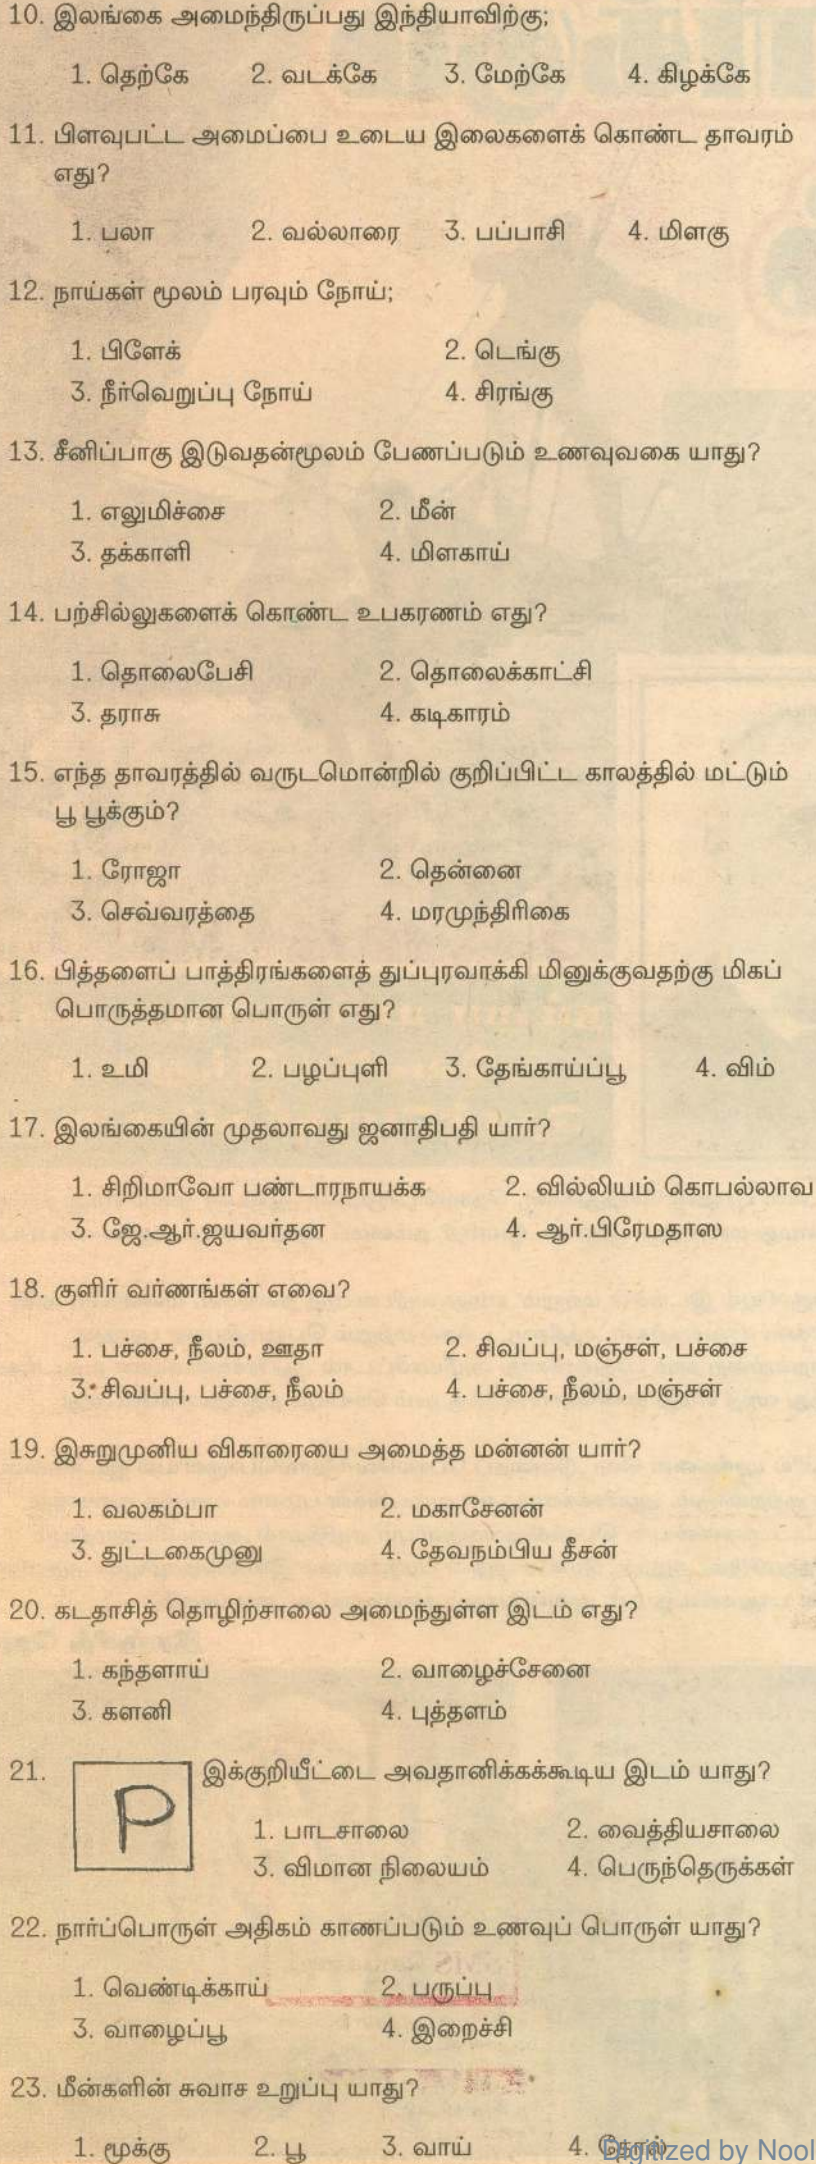 10. இலங்கை அமைந்திருப்பது இந்தியாவிற்கு;
1. தெற்கே 2. வடக்கே 3. மேற்கே 4. கிழக்கே
11. பிளவுபட்ட அமைப்பை உடைய இலைகளைக் கொண்ட தாவரம்
எது?
1. பலா 2. வல்லாரை 3. பப்பாசி 4. மிளகு
12. நாய்கள் மூலம் பரவும் நோய்;
1. பிளேக் 2. டெங்கு
3. நீர்வெறுப்பு நோய் 4. சிரங்கு
13. சீனிப்பாகு இடுவதன்மூலம் பேணப்படும் உணவுவகை யாது?
1. எலுமிச்சை 2. மீன்
3. தக்காளி 4. மிளகாய்
14. பற்சில்லுகளைக் கொண்ட உபகரணம் எது?
1. தொலைபேசி 2. தொலைக்காட்சி
3. தராசு 4. கடிகாரம்
15. எந்த தாவரத்தில் வருடமொன்றில் குறிப்பிட்ட காலத்தில் மட்டும்
பூ பூக்கும்?
1. ரோஜா 2. தென்னை
3. செவ்வரத்தை 4. மரமுந்திரிகை
16. பித்தளைப் பாத்திரங்களைத் துப்புரவாக்கி மினுக்குவதற்கு மிகப்
பொருத்தமான பொருள் எது?
1. உமி 2. பழப்புளி 3. தேங்காய்ப்பூ 4. விம்
17. இலங்கையின் முதலாவது ஜனாதிபதி யார்?
1. சிறிமாவோ பண்டாரநாயக்க 2. வில்லியம் கொபல்லாவ
3. ஜே.ஆர்.ஜயவர்தன 4. ஆர்.பிரேமதாஸ
18. குளிர் வர்ணங்கள் எவை?
1. பச்சை, நீலம், ஊதா 2. சிவப்பு, மஞ்சள், பச்சை
3. சிவப்பு, பச்சை, நீலம் 4. பச்சை, நீலம், மஞ்சள்
19. இசுறுமுனிய விகாரையை அமைத்த மன்னன் யார்?
1. வலகம்பா 2. மகாசேனன்
3. துட்டகைமுனு 4. தேவநம்பிய தீசன்
20. கடதாசித் தொழிற்சாலை அமைந்துள்ள இடம் எது?
1. கந்தளாய் 2. வாழைச்சேனை
3. களனி 4. புத்தளம்
21. P இக்குறியீட்டை அவதானிக்கக்கூடிய இடம் யாது?
1. பாடசாலை 2. வைத்தியசாலை
3. விமான நிலையம் 4. பெருந்தெருக்கள்
22. நார்ப்பொருள் அதிகம் காணப்படும் உணவுப் பொருள் யாது?
1. வெண்டிக்காய் 2. பருப்பு
3. வாழைப்பூ 4. இறைச்சி
23. மீன்களின் சுவாச உறுப்பு யாது?
1. மூக்கு 2. பூ 3. வாய் 4. தோல்
Digitized by Nool